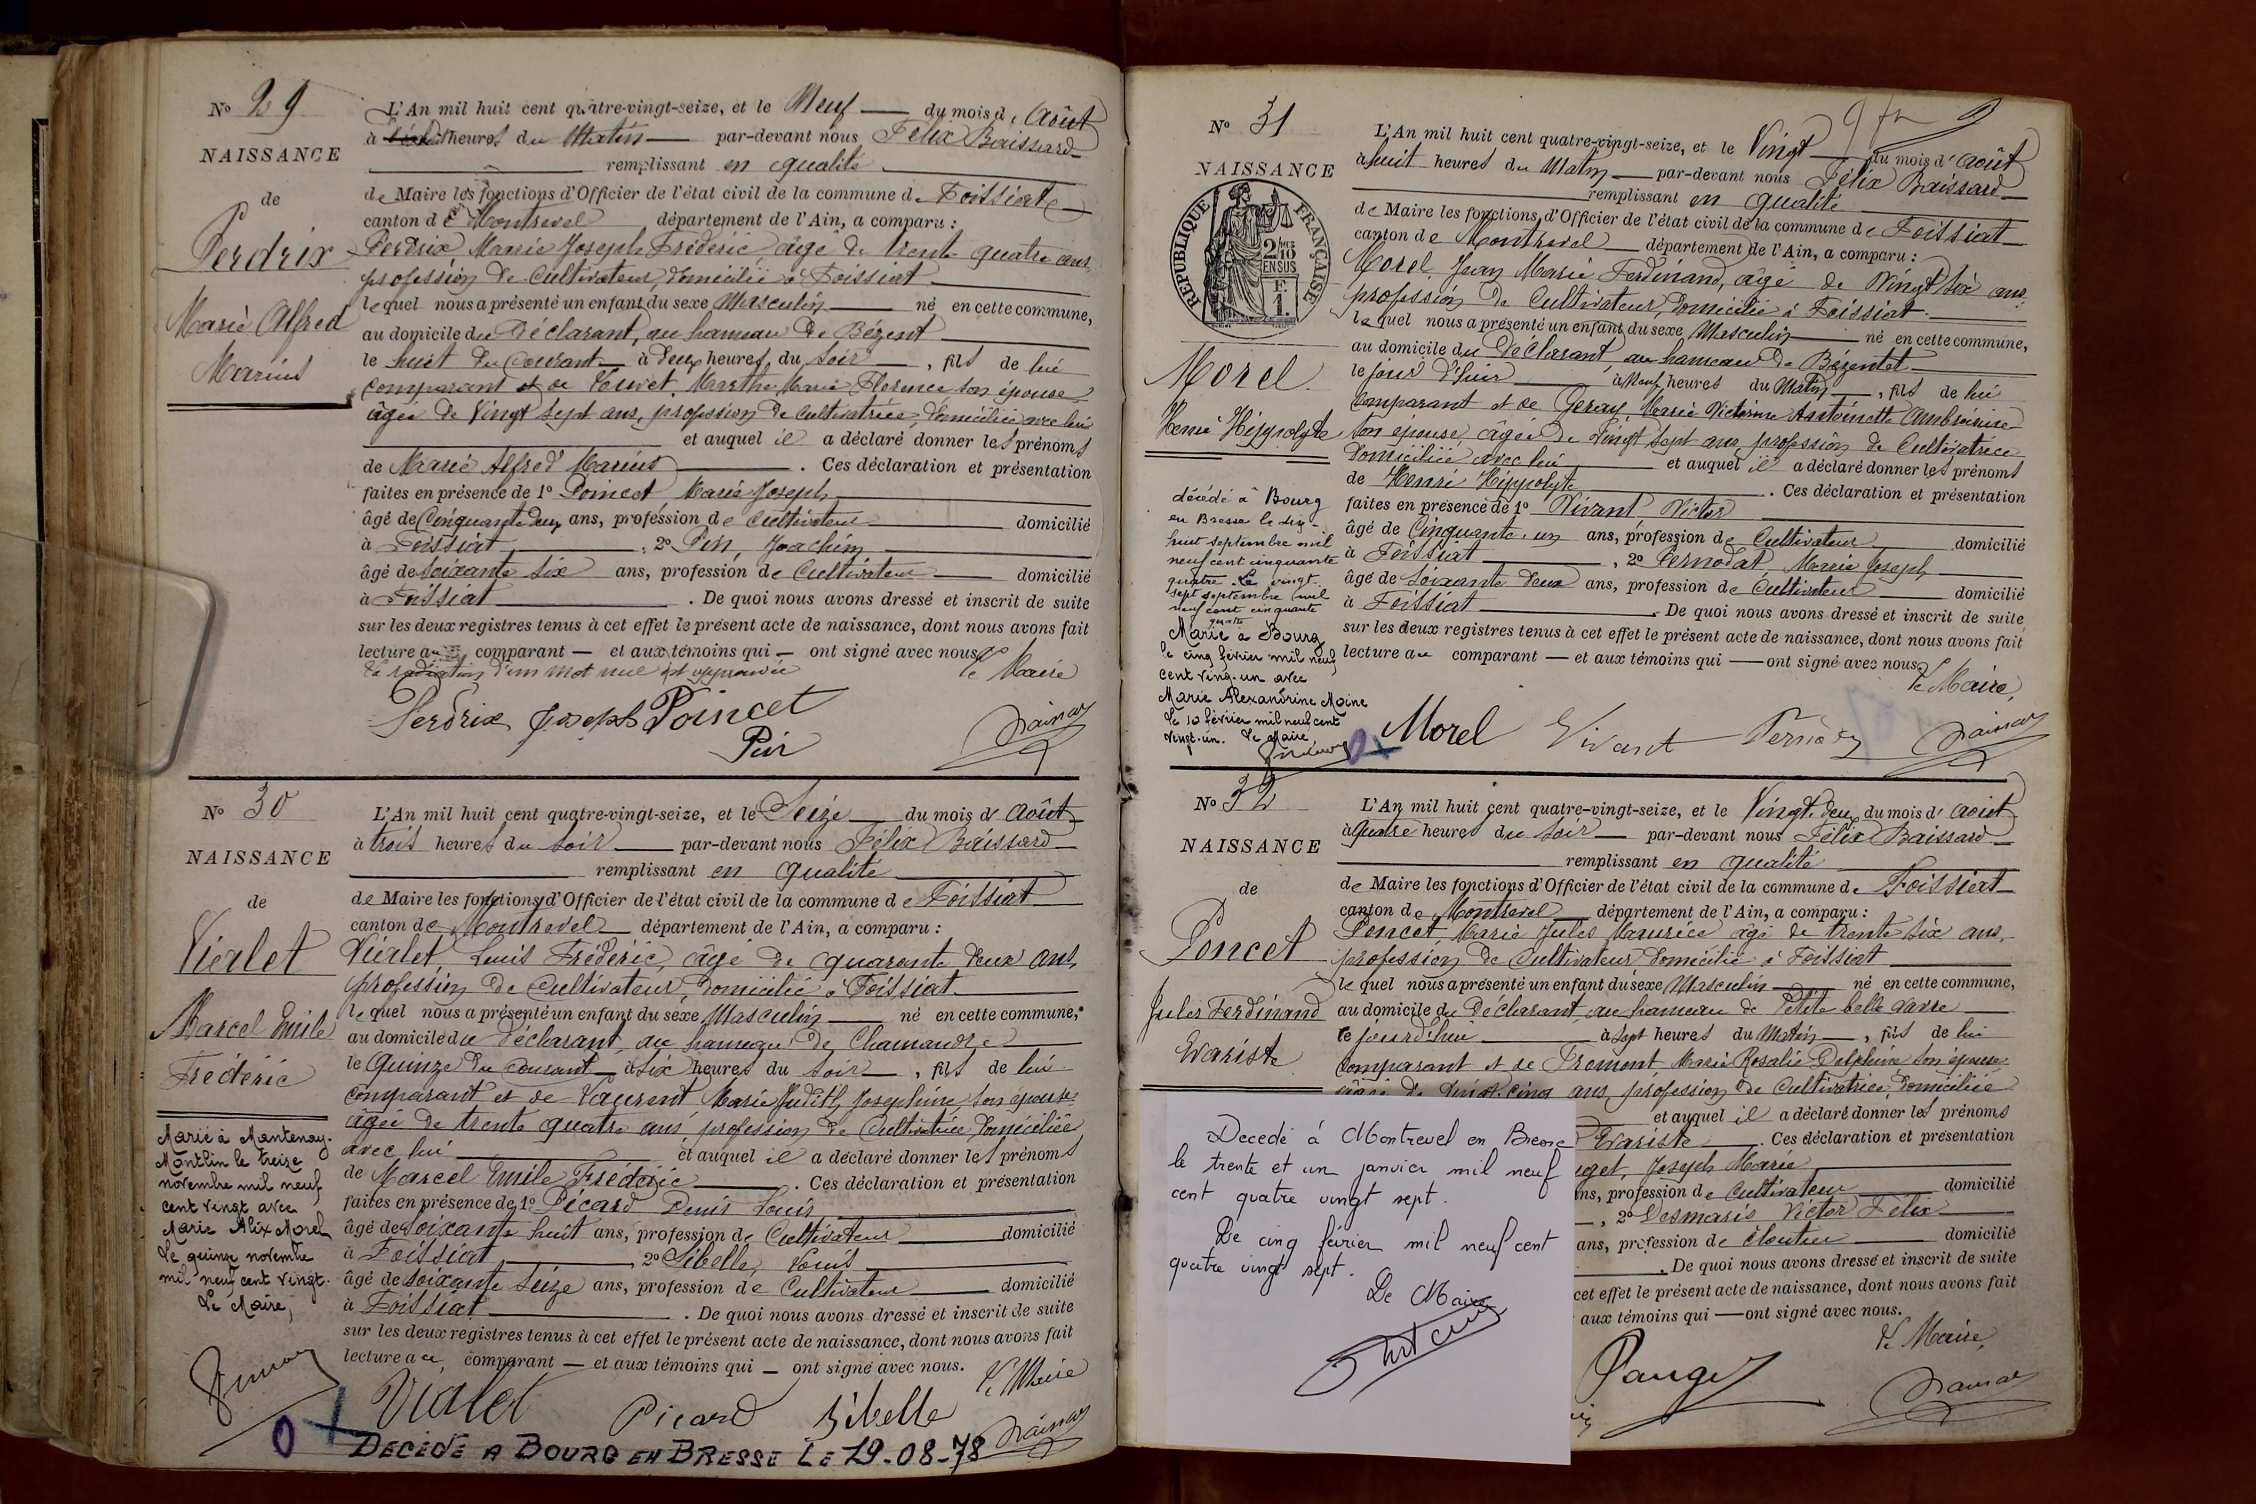 No 29
NAISSANCE
de
Perdrix
Marie Alfred
Marius
L'An mil huit cent quatre-vingt-seize, et le Neuf du mois d'Août
à heures du Matin par-devant nous Félix Baissard
remplissant en qualité
de Maire les fonctions d'Officier de l'état civil de la commune de Foissiat
canton de Montrevel département de l'Ain, a comparu :
Perdrix Marie Joseph Fréderic, âgé de trente quatre ans
profession de Cultivateur, domicilié à Foissiat
lequel nous a présenté un enfant du sexe Masculin né en cette commune,
au domicile du Déclarant, au hameau de Bézent
le huit du Courant à deux heures du Soir, fils de lui
comparant et de Marthe Marie Florence son épouse
âgée de Vingt Sept ans, profession de cultivatrice, domiciliée avec lui
et auquel il a déclaré donner les prénoms
de Marie Alfred Marius. Ces déclaration et présentation
faites en présence de 1o Poincet Marie Joseph
âgé de Cinquante deux ans, profession de Cultivateur domicilié
à Foissiat, 2o Pin, Joachim
âgé de Soixante Six ans, profession de Cultivateur domicilié
à Foissiat. De quoi nous avons dressé et inscrit de suite
sur les deux registres tenus à cet effet le présent acte de naissance, dont nous avons fait
lecture au comparant et aux témoins qui ont signé avec nous.
La radiation d'un mot nul est approuvée Le Maire
Perdrix Joseph Poincet
Pin
No 30
NAISSANCE
de
Vialet
Marcel Emile
Fréderic
Marié à Mantenay-
Montlin le treize
novembre mil neuf
cent vingt avec
Marie Alix Morel
Le quinze novembre
mil neuf cent vingt.
Le Maire,
L'An mil huit cent quatre-vingt-seize, et le Seize du mois d'Août
à trois heures du Soir par-devant nous Félix Baissard
remplissant en qualité
de Maire les fonctions d'Officier de l'état civil de la commune de Foissiat
canton de Montrevel département de l'Ain, a comparu :
Vialet, Louis Fréderic, âgé de quarante deux ans,
profession de Cultivateur, domicilié à Foissiat
lequel nous a présenté un enfant du sexe Masculin né en cette commune,
au domicile du Déclarant, au hameau de Chamandre
le Quinze du Courant à Six heures du Soir, fils de lui
comparant et de Laurent Marie Judith Joséphine, son épouse
âgée de trente quatre ans, profession de Cultivatrice, domiciliée
avec lui et auquel il a déclaré donner les prénoms
de Marcel Emile Fréderic. Ces déclaration et présentation
faites en présence de 1o Picard Denis Louis
âgé de Soixante huit ans, profession de Cultivateur domicilié
à Foissiat, 2o Sibelle, Louis
âgé de Soixante Seize ans, profession de Cultivateur domicilié
à Foissiat. De quoi nous avons dressé et inscrit de suite
sur les deux registres tenus à cet effet le présent acte de naissance, dont nous avons fait
lecture au comparant et aux témoins qui ont signé avec nous. Le Maire
Vialet Picard Sibelle
DECEDE A BOURG EN BRESSE LE 19-08-78
No 31
NAISSANCE
RÉPUBLIQUE FRANÇAISE
2/10
EN SUS
F.
1.
Morel
Henri Hippolyte
décédé à Bourg
en Bresse le dix-
huit septembre mil
neuf cent cinquante
quatre. Le vingt
sept septembre mil
neuf cent cinquante
quatre
Marié à Bourg
le cinq février mil neuf
cent vingt-un avec
Marie Alexandrine Moine
Le 10 février mil neuf cent
vingt-un. Le Maire,
L'An mil huit cent quatre-vingt-seize, et le Vingt du mois d'Août
à huit heures du Matin par-devant nous Félix Baissard
remplissant en qualité
de Maire les fonctions d'Officier de l'état civil de la commune de Foissiat
canton de Montrevel département de l'Ain, a comparu :
Morel Jean Marie Ferdinand, âgé de Vingt Six ans,
profession de Cultivateur, domicilié à Foissiat
lequel nous a présenté un enfant du sexe Masculin né en cette commune,
au domicile du Déclarant, au hameau de Bézentet
le jour d'hier à Neuf heures du Matin, fils de lui
comparant et de Geray Marie Victorine Antoinette Ambroisine
son épouse, âgée de Vingt Sept ans, profession de Cultivatrice
domiciliée avec lui et auquel il a déclaré donner les prénoms
de Henri Hippolyte. Ces déclaration et présentation
faites en présence de 1o Vivant Victor
âgé de Cinquante un ans, profession de Cultivateur domicilié
à Foissiat, 2o Pernodat, Marie Joseph
âgé de Soixante deux ans, profession de Cultivateur domicilié
à Foissiat. De quoi nous avons dressé et inscrit de suite
sur les deux registres tenus à cet effet le présent acte de naissance, dont nous avons fait
lecture au comparant et aux témoins qui ont signé avec nous.
Le Maire,
Morel Vivant
No 32
NAISSANCE
de
Poncet
Jules Ferdinand
Evariste
L'An mil huit cent quatre-vingt-seize, et le Vingt-deux du mois d'Août
à Quatre heures du Soir par-devant nous Félix Baissard
remplissant en qualité
de Maire les fonctions d'Officier de l'état civil de la commune de Foissiat
canton de Montrevel département de l'Ain, a comparu :
Poncet Marie Jules Maurice âgé de trente Six ans,
profession de Cultivateur domicilié à Foissiat
lequel nous a présenté un enfant du sexe Masculin né en cette commune,
au domicile du Déclarant, au hameau de Petite belle
le jourd'hui à Sept heures du Matin, fils de lui
comparant et de Premont Marie Rosalie Delphine son épouse
âgée de Vingt cinq ans, profession de Cultivatrice, domiciliée
et auquel il a déclaré donner les prénoms
Evariste. Ces déclaration et présentation
uget, Joseph Marie
ans, profession de Cultivateur domicilié
, 2o Desmaris Victor Félix
ans, profession de Cloutier domicilié
. De quoi nous avons dressé et inscrit de suite
cet effet le présent acte de naissance, dont nous avons fait
aux témoins qui ont signé avec nous.
Le Maire,
Decedé à Montrevel en Bresse
le trente et un janvier mil neuf
cent quatre vingt sept.
Le cinq février mil neuf cent
quatre vingt sept.
Le Maire